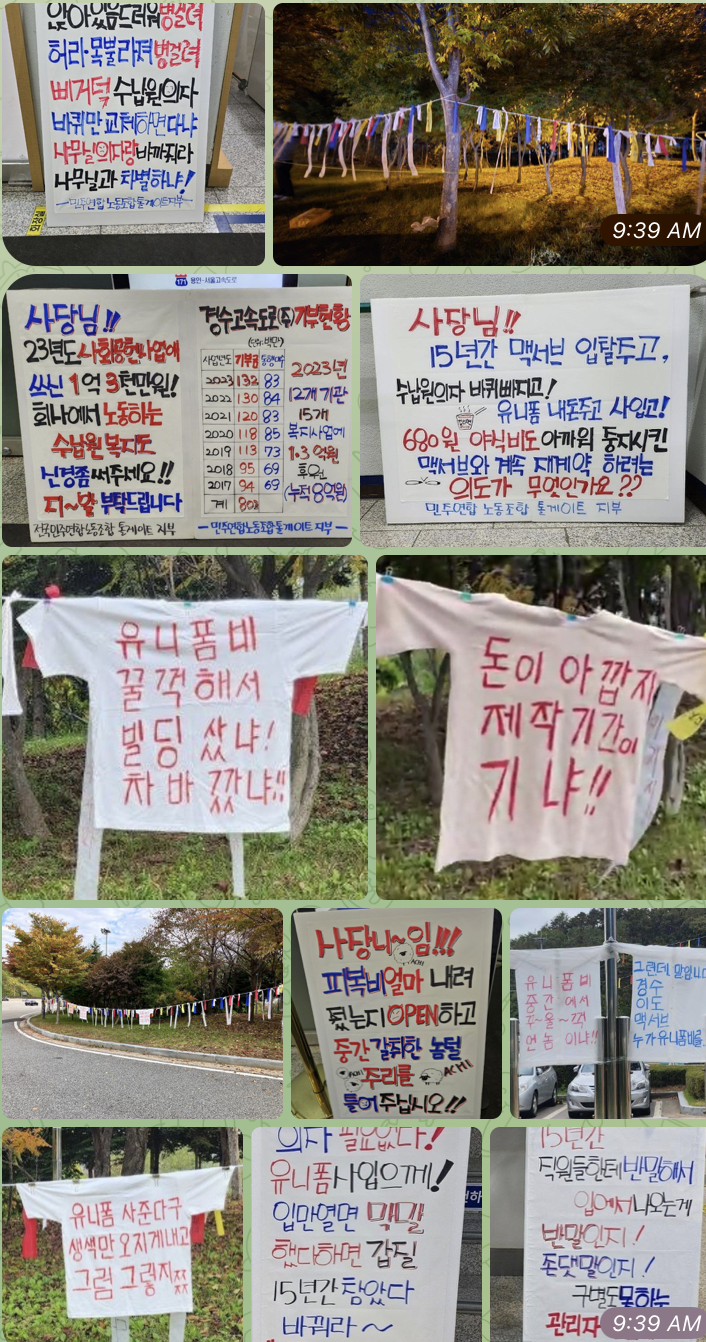 앉아있음드러워병걸려
허리·목뿔라져병걸려
삐거덕 수납원의자
바퀴만 교체하면다냐
사무실의자랑 바까줘라
사무실과 차별하냐!
민주연합 노동조합 톨게이트지부
9:39 AM
171 용인·서울고속도로
사당님!!
23년도사회공헌사업에
쓰신 1억 3천만원!
회사에서 노동하는
수납원 복지도
신경좀써주세요!!
지~발 부탁드립니다
전국민주연합노동조합 톨게이트 지부
경수고속도로(주)기부현황
(단위:백만)
사업년도 기부금
2023 132 83
2022 130 84
2021 120 83
2020 118 85
2019 113 73
2018 95 69
2017 94 69
계 802
2023년
12개 기관
15개
복지사업에
1.3억원
후원
(누적8억원)
민주연합노동조합톨게이트 지부
사당님!!
15년간 맥서브 입찰주고,
수납원의자 바퀴빠지고!
유니폼 내돈주고 사입고!
680원 야식비도 아까워 중지시킨
맥서브와 계속 재계약 하려는
의도가 무엇인가요??
민주연합 노동조합 톨게이트 지부
유니폼비
꿀꺽해서
빌딩 샀냐!
차 바꿨냐!!
돈이 아깝지
제작기간이
기냐!!
사당니~임!!!
피복비얼마 내려
줬는지 OPEN하고
중간갈취한 놈털
주리를
틀어주십시오!!
유니폼비
중간에서
주~욱~꺽
언놈이냐!!
그런데 말입니다
경수
이도
맥서브
누가유니폼비를
유니폼 사준다구
생색만 오지게내고
그럼 그렇지ㅉㅉ
의자 필요없다!
유니폼사입으께!
입만열면 막말
했다하면 갑질
15년간 참았다
바꿔라~
15년간
직원들한테 반말해서
입에서나오는게
반말인지!
존댓말인지!
구별도못하는
관리자
9:39 AM